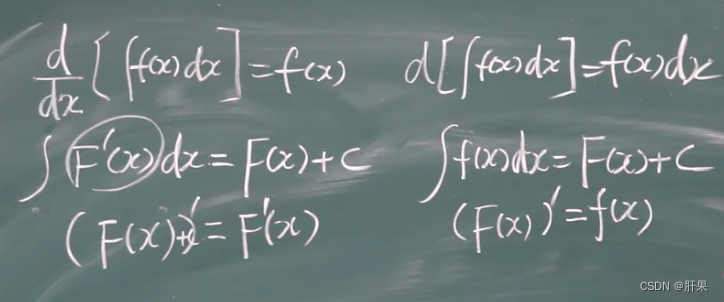 d/dx [∫f(x)dx] = f(x)  d[∫f(x)dx] = f(x)dx
∫F'(x)dx = F(x)+C  ∫f(x)dx = F(x)+C
(F(x)+c)' = F'(x)  (F(x))' = f(x)
CSDN @肝果